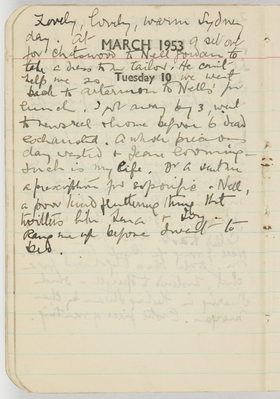 Lovely, lovely, warm Sydney
day. At 9 set out
MARCH 1953
for Chatswood to Nell
to
take a dress to a tailor. He can't
help me so we went
Tuesday 10
back to afternoon to Nelly's for
lunch. I got away by 3, went
to newsreel & home before 6 dead
exhausted. A whole precious
day wasted & Jean coming -
such is my life. Dr a
a prescription for soporific. Nell,
a poor kind fluttering thing that
twitters like
Rang me up before I went to
bed.